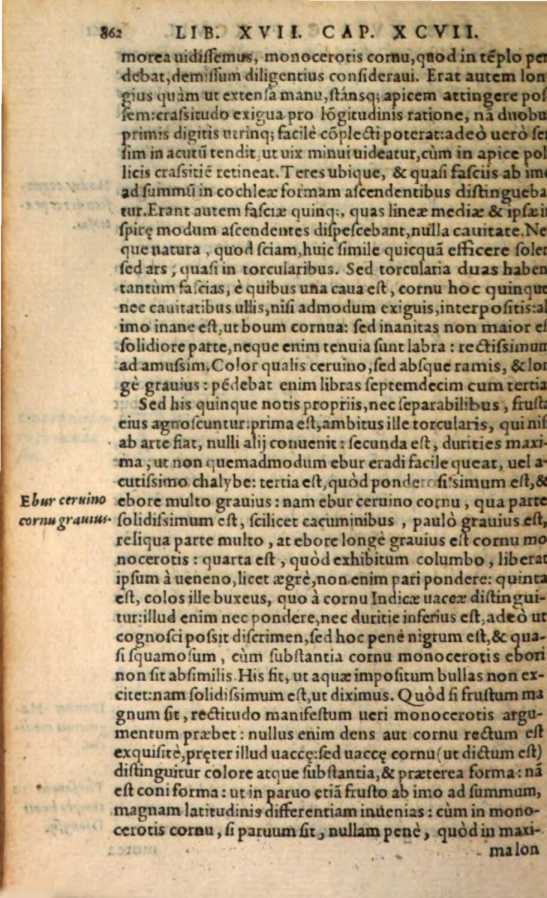 862 LIB. XVII. CAP. XCVII.
morea uidissemus, monocerotis cornu, quod in tẽplo pen
debat, demissum diligentius consideraui. Erat autem lon
gius quàm ut extensa manu, stánsq; apicem attingere pos
sem: crassitudo exigua pro lõgitudinis ratione, nã duobu
primis digitis utrinq; facilè cõplecti poterat: adeò uerò sen
sim in acutũ tendit, ut uix minui uideatur, cùm in apice pol
licis crassitiẽ retineat. Teres ubique, & quasi fasciis ab imo
ad summũ in cochleæ formam ascendentibus distingueba
tur. Erant autem fasciæ quinq;, quas lineæ mediæ & ipsæ in
spiręmodum ascendentes dispescebant, nulla cauitate. Ne
que natura, quod sciam, huic simile quicquã efficere solet
sed ars, quasi in torcularibus. Sed torcularia duas haben
tantùm fascias, è quibus una caua est, cornu hoc quinque
nec cauitatibus ullis, nisi admodum exiguis, interpositis: ab
imo inane est, ut boum cornua: sed inanitas non maior est
solidiore parte, neque enim tenuia sunt labra: rectissimum
ad amussim. Color qualis ceruino, sed absque ramis, & lon
gè grauius: pẽdebat enim libras septemdecim cum tertia
Sed his quinque notis propriis, nec separabilibus, frusta
eius agnoscuntur: prima est, ambitus ille torcularis, qui nisi
ab arte fiat, nulli alij conuenit: secunda est, durities maxi-
ma, ut non quemadmodum ebur eradi facile queat, uel a-
cutissimo chalybe: tertia est, quòd ponderosissimum est, &
Ebur ceruino
cornu grauius.
ebore multo grauius: nam ebur ceruino cornu, qua parte
solidissimum est, scilicet cacuminibus, paulò grauius est,
reliqua parte multo, at ebore longè grauius est cornu mo
nocerotis: quarta est, quòd exhibitum columbo, liberat
ipsum à ueneno, licet ægrè, non enim pari pondere: quinta
est, colos ille buxeus, quo à cornu Indicæ uaccæ distingui-
tur: illud enim nec pondere, nec duritie inferius est, adeò ut
cognosci possit discrimen, sed hoc penè nigrum est, & qua-
si squamosum, cùm substantia cornu monocerotis ebori
non sit absimilis. His fit, ut aquæ impositum bullas non ex-
citet: nam solidissimum est, ut diximus. Quòd si frustum ma
gnum sit, rectitudo manifestum ueri monocerotis argu-
mentum præbet: nullus enim dens aut cornu rectum est
exquisitè, pręter illud uaccę: sed uaccę cornu (ut dictum est)
distinguitur colore atque substantia, & præterea forma: nã
est coni forma: ut in paruo etiã frusto ab imo ad summum,
magnam latitudinis differentiam inuenias: cùm in mono-
cerotis cornu, si paruum sit, nullam penè, quòd in maxi-
ma lon